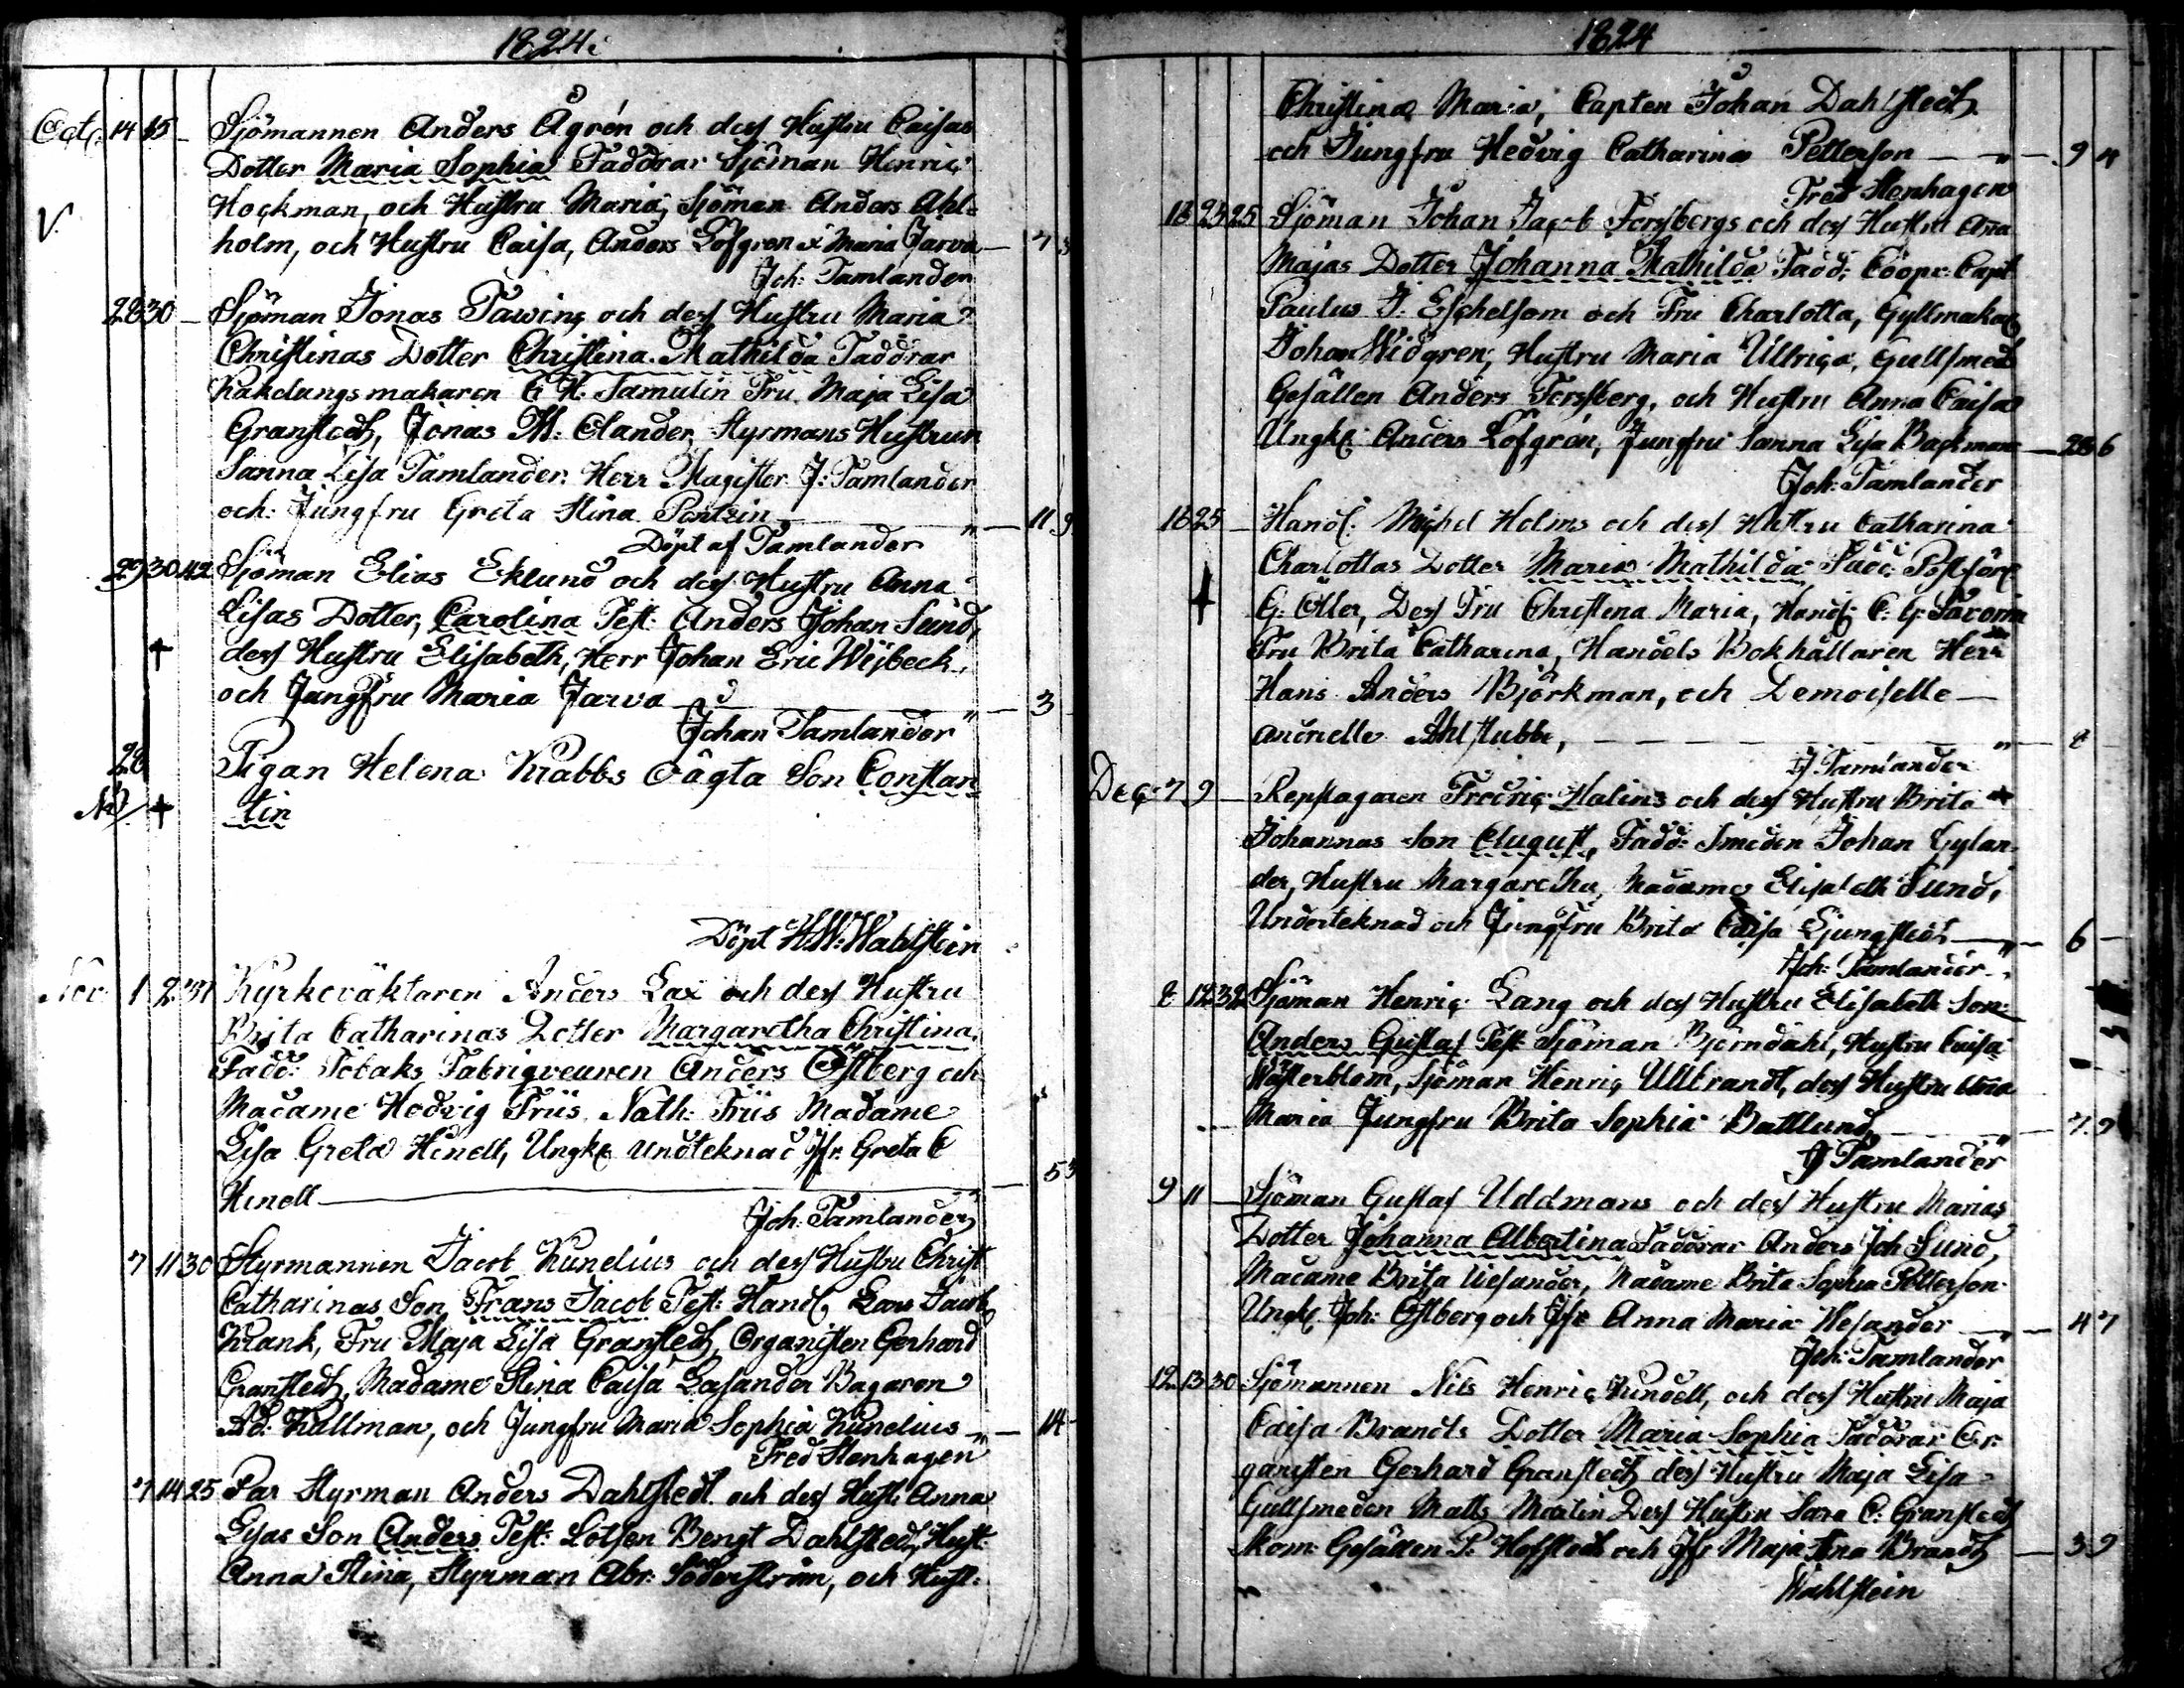 1824
Oct. 14 15 – Sjömannen Anders Ågrén och dess Hustru Caisas
Dotter Maria Sophia Faddrar Sjöman Henric
V. Hockman, och Hustru Maria, Sjöman Anders Ahl-
holm, och Hustru Caisa, Anders Löfgren & Maria Jarva – 7 3
Joh: Tamlander
28 30 – Sjöman Jonas Tawing och dess Hustru Maria
Christinas Dotter Christina Mathilda Faddrar
Kakelungsmakaren C H: Samulin Fru Maja Lisa
Granstedt, Jonas M: Elander, Styrmans Hustrun
Sanna Lisa Tamlander. Herr Magister J: Tamlander
och Jungfru Greta Stina Pontzin " – 11 9
Döpt af Tamlander
29 30 42 Sjöman Elias Eklund och dess Hustru Anna
Lisas Dotter, Carolina Test: Anders Johan Sund,
† dess Hustru Elisabeth, Herr Johan Eric Wijbeck,
och Jungfru Maria Jarva " – 3
Johan Tamlander
28 Pigan Helena Krabbs oägta Son Constan-
† tin
Döpt H.W: Wahlstein
Nov 1 2 37 Kyrkoväktaren Anders Lax och dess Hustru
Brita Catharinas Dotter Margaretha Christina.
Fadd: Tobaks Fabriqveuren Anders Östberg och
Madame Hedvig Friis, Nath: Friis Madame
Lisa Greta Hinell, Ungk. Undteknad Jfr. Greta C
Hinell – 5 3
Joh: Tamlander
7 11 30 Styrmannen Jacob Kunelius och dess Hustru Christ
Catharinas Son Frans Jacob Test: Handl. Lars Jacob
Krank, Fru Maja Lisa Granstedt, Organisten Gerhard
Granstedt, Madame Stina Caisa Lasander Bagaren
Ad: Kullman, och Jungfru Maria Sophia Kunelius " – 14 –
Fred Stenhagen
7 14 25 Par Styrman Anders Dahlstedt och dess Hust: Anna
Lisas Son Anders Test: Lotsen Bengt Dahlstedt, Hust:
Anna Stina, Styrman Abr: Söderström, och Hust:
1824
Christina Maria, Capten Johan Dahlstedt
och Jungfru Hedvig Catharina Petterson – " – 9 4
Fred Stenhagen
18 23 25 Sjöman Johan Jacob Forsbergs och dess Hustru Anna
Majas Dotter Johanna Mathilda Fadd: Coopv: Capt
Paulus J: Eschelsom och Fru Charlotta, Gyltmakar
Johan Widgren, Hustru Maria Ullrica, Gullsmed
Gesällen Anders Forsberg, och Hustru Anna Caisa
Ungk: Anders Löfgrén, Jungfru Sanna Lisa Backman – 26 6
Joh: Tamlander
18 25 – Handl. Michel Holms och dess Hustru Catharina
Charlottas Dotter Maria Mathilda Fadd: Postför.
† G: Öller, Dess Fru Christina Maria, Handl. C. G: Favorin
Fru Brita Catharina, Handels Bokhållaren Herr
Hans Anders Björkman, och Demoiselle –
Andriette Ahlstubbe, – " – 8
J Tamlander
Dec 7 9 – Repslagaren Fredric Halins och dess Hustru Brita
Johannas Son August, Fadd: Smeden Johan Gylan-
der, Hustru Margaretha, Madame Elisabeth Sund,
Underteknad och Jungfru Brita Caisa Ljungstedt " – 6 –
Joh: Tamlander
8 12 32 Sjöman Henric Lang och dess Hustru Elisabeth Son:
Anders Gustaf Test: Sjöman Björndahl, Hustru Caisa
Wästerblom, Sjöman Henric Ullbrandt, dess Hustru Anna
Maria Jungfru Brita Sophia Battlund " – 7 9
J Tamlander
9 11 – Sjöman Gustaf Uddmans och dess Hustru Marias
Dotter Johanna Albertina Faddrar Anders Joh Sund,
Madame Brita Wesander, Madame Brita Sophia Petterson
Ungk. Joh: Östberg och Jfr Anna Maria Wesander " – 4 7
Joh: Tamlander
12 13 30 Sjömannen Nils Henric Kundell, och dess Hustru Maja
Caisa Brandts Dotter Maria Sophia Faddrar Or-
ganisten Gerhard Granstedt dess Hustru Maja Lisa
Gullsmeden Matts Martin Dess Hustru Sara C: Granstedt
Skom: Gesällen P: Hoffstedt och Jfr Maja Stina Brandt – 3 9
Wahlstein